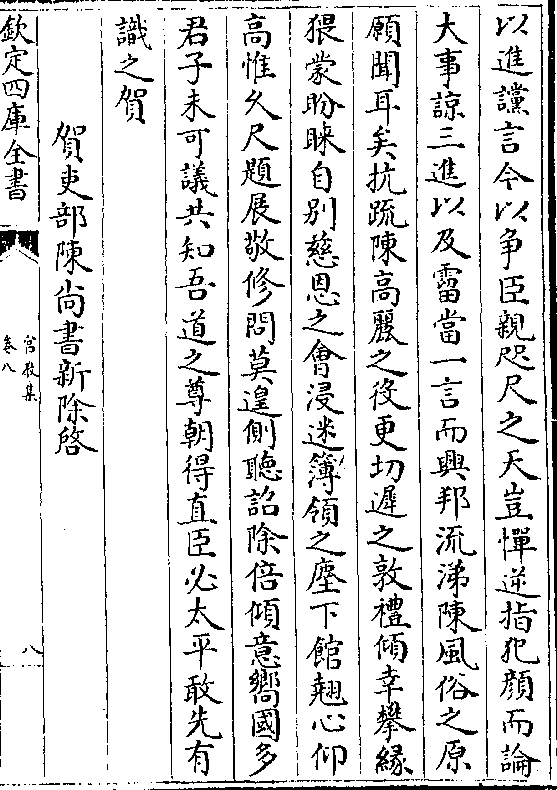 以進讜言今以争臣親咫尺之天豈憚逆指犯顔而論
大事諒三進以及霤當一言而興邦流涕陳風俗之原
願聞耳矣抗疏陳高麗之役更切遲之敦禮傾幸攀縁
猥蒙盼睞自別慈恩之會浸迷簿領之塵下館翹心仰
高惟久尺題展敬修問莫遑側聽詔除倍傾意嚮國多
君子未可議共知吾道之尊朝得直臣必太平敢先有
識之賀
賀吏部陳尚書新除啓
欽定四庫全書
宫教集
卷八
八